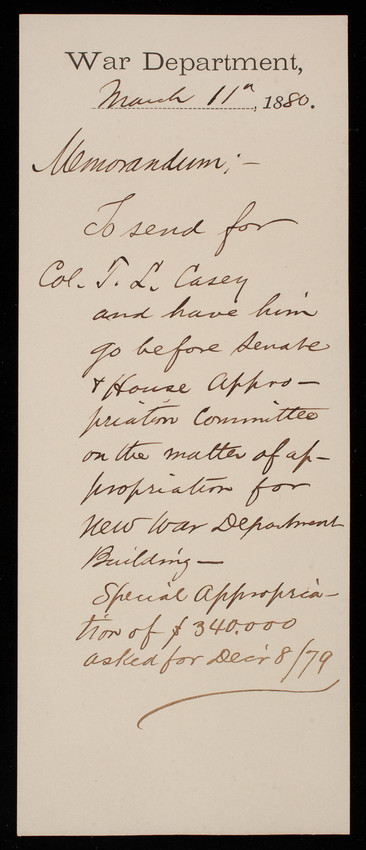 War Department,
March 11th, 1880.
Memorandum;-
To send for
Col. T. L. Casey
and have him
go before Senate
& House Appro-
priation Committee
on the matter of ap-
propriation for
new War Department
Building—
Special Appropria-
tion of $340.000
asked for Decr 8/79